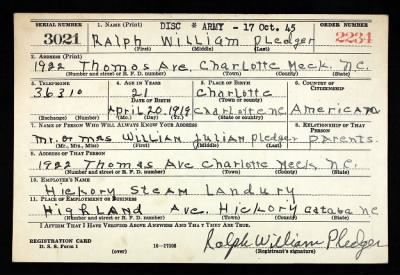 SERIAL NUMBER 1. NAME (Print) DISC # ARMY - 17 Oct. 45 ORDER NUMBER
3021 Ralph William Pledger 2234
(First) (Middle) (Last)
2. ADDRESS (Print)
1922 Thomas Ave Charlotte Meck. N.C.
(Number and street or R. F. D. number) (Town) (County) (State)
3. TELEPHONE 4. AGE IN YEARS 5. PLACE OF BIRTH 6. COUNTRY OF CITIZENSHIP
36310 21 Charlotte
(Town or county)
DATE OF BIRTH
April 20 1919 Charlotte NC American
(Exchange) (Number) (Mo.) (Day) (Yr.) (State or country)
7. NAME OF PERSON WHO WILL ALWAYS KNOW YOUR ADDRESS 8. RELATIONSHIP OF THAT PERSON
Mr. or Mas William Julian Pledger Parents.
(Mr., Mrs., Miss) (First) (Middle) (Last)
9. ADDRESS OF THAT PERSON
1922 Thomas Ave Charlotte Meck N.C.
(Number and street or R. F. D. number) (Town) (County) (State)
10. EMPLOYER'S NAME
Hickory Steam Landury
11. PLACE OF EMPLOYMENT OR BUSINESS
Highland Ave. Hickory Cataba NC
(Number and street or R. F. D. number) (Town) (County) (State)
I AFFIRM THAT I HAVE VERIFIED ABOVE ANSWERS AND THAT THEY ARE TRUE.
REGISTRATION CARD Ralph William Pledger
D. S. S. Form 1 (over) 16-17105 (Registrant's signature)